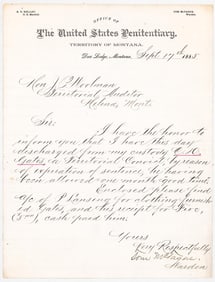 OFFICE OF
The United States Penitentiary,
TERRITORY OF MONTANA.
Deer Lodge, Montana, Sept. 17th 1885
Hon. J. P. Woolman
Territorial Auditor
Helena, Mont.
Sir:
I have the honor to
inform you that I have this day
discharged from my custody
Gates, a Territorial Convict, by reason
of expiration of sentence, he having
been allowed one month good time.
Enclosed please find
a/c of P. Lansing for clothing furnish
ed Gates, and his receipt for Five,
cash paid him.
Yours
Very Respectfully
Warden